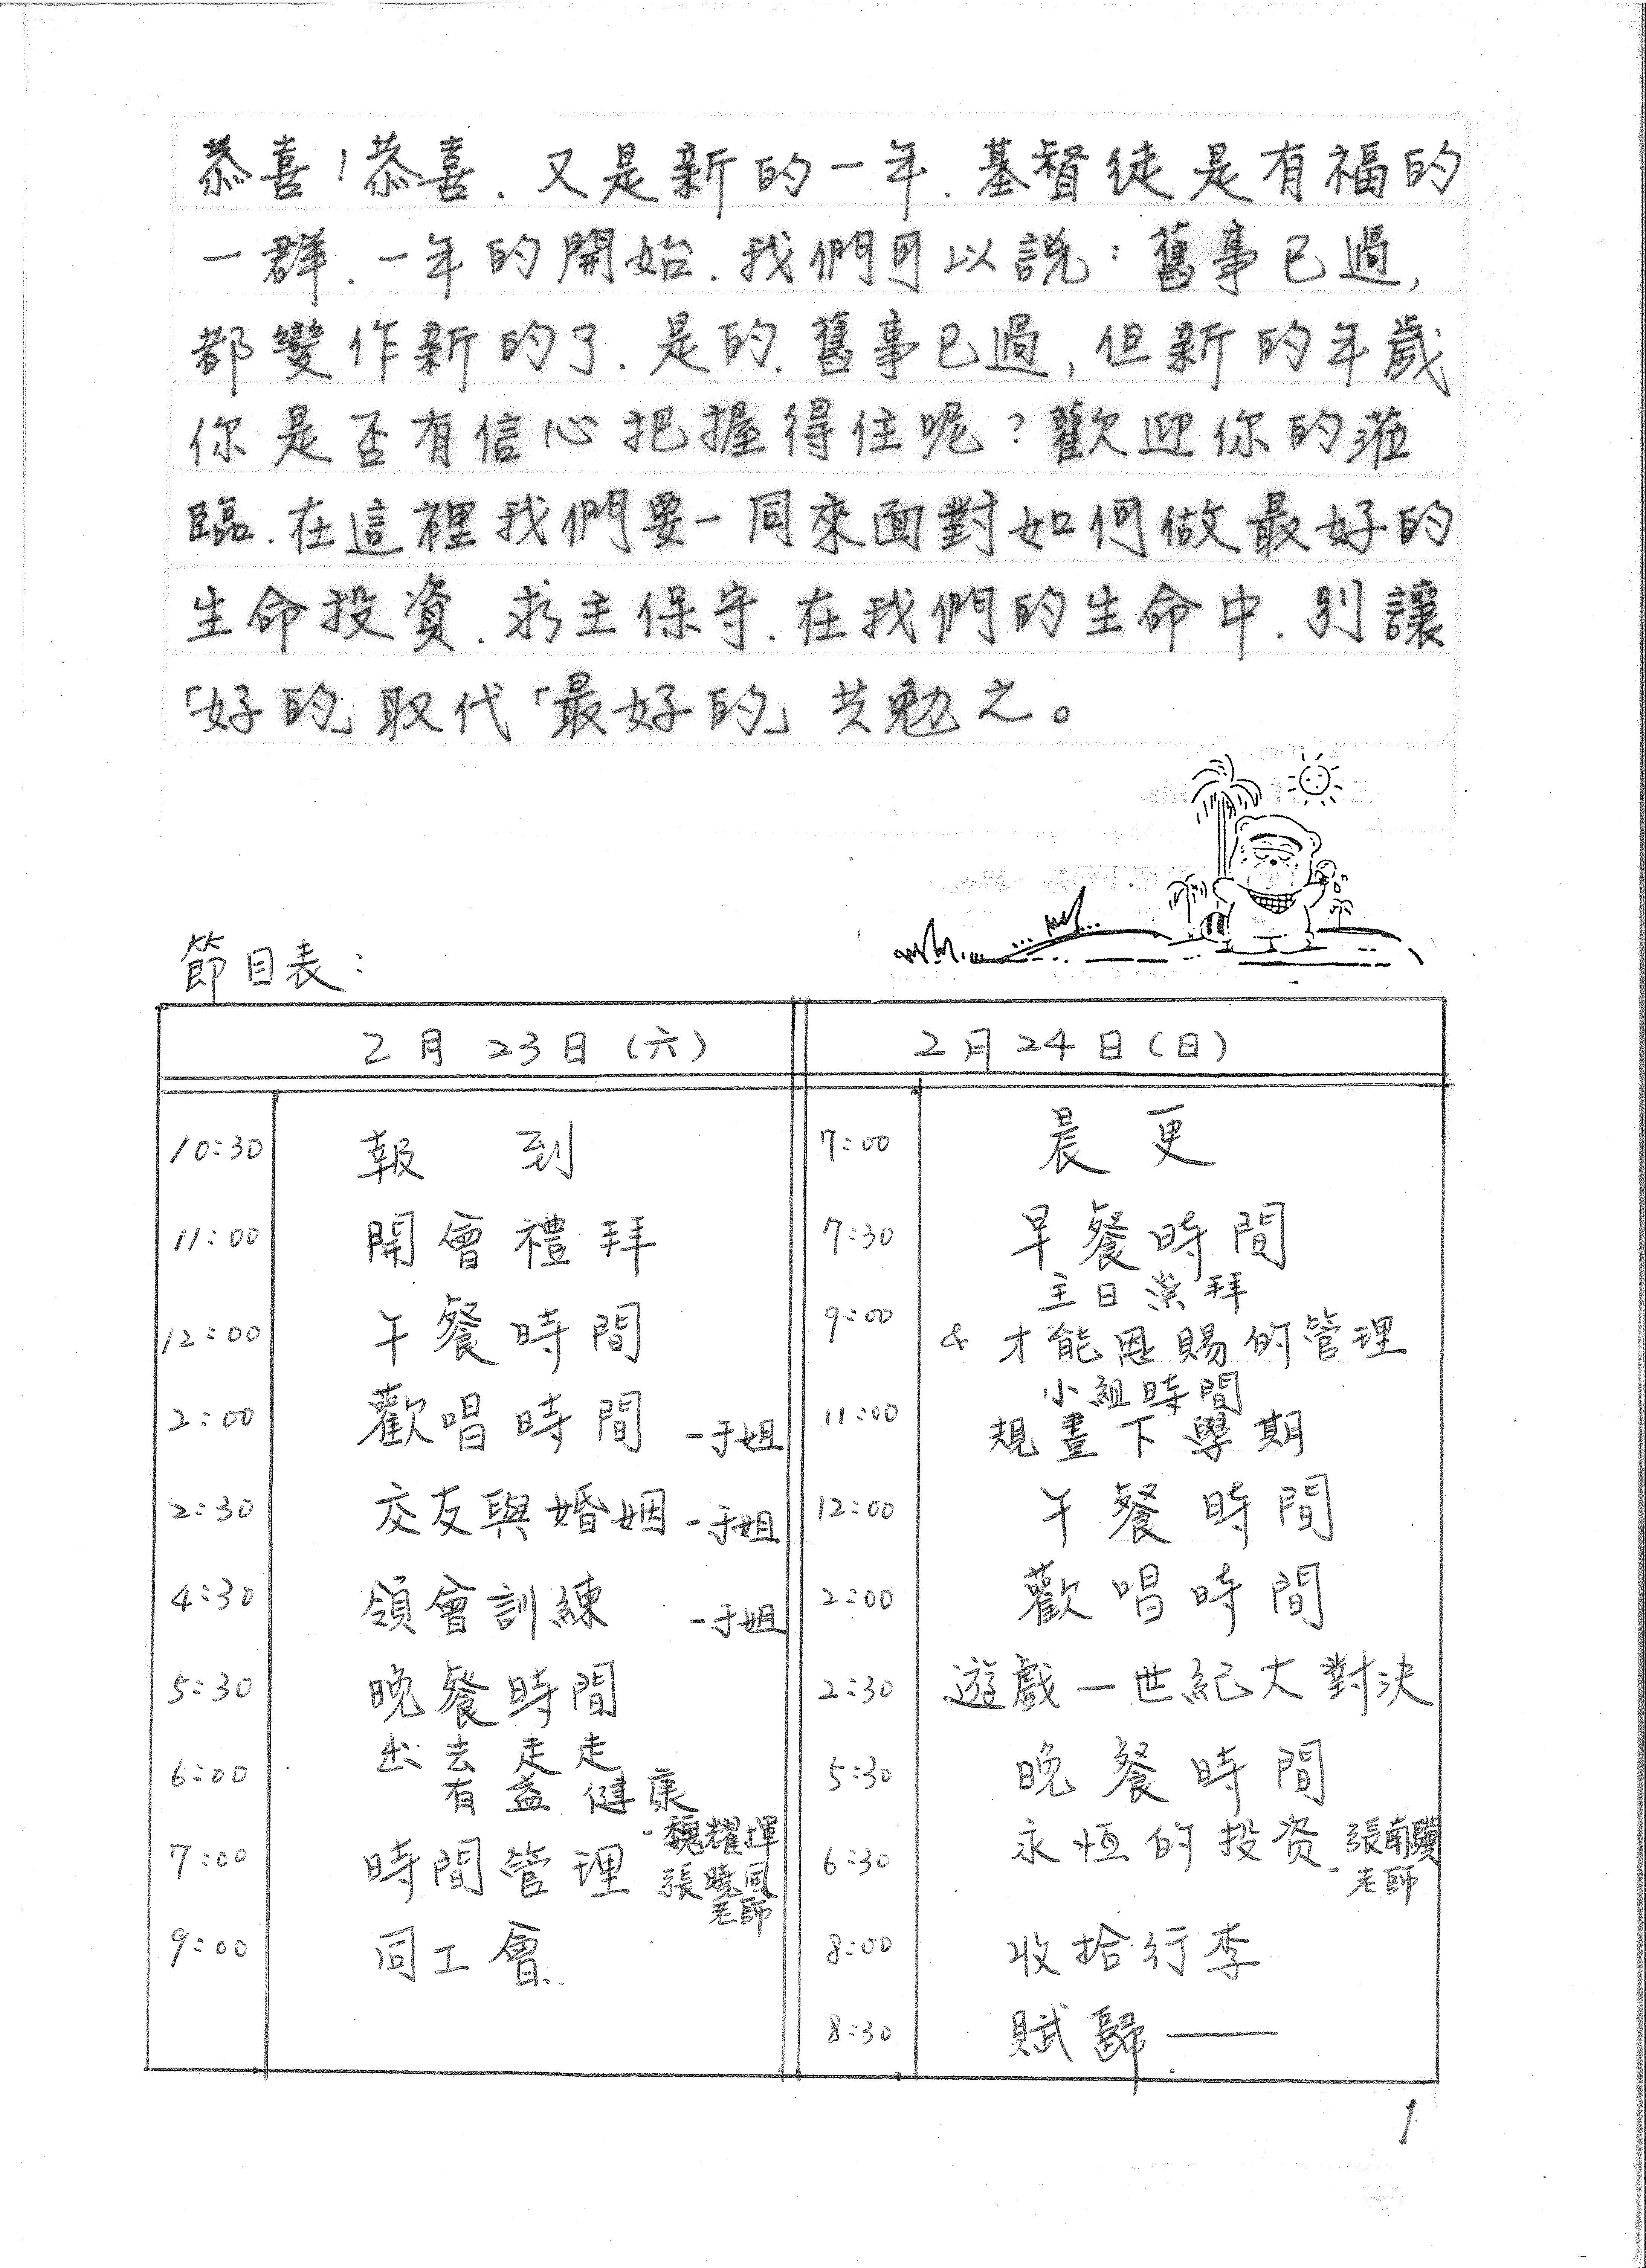 恭喜!恭喜.又是新的一年.基督徒是有福的
一群.一年的開始.我們可以說:舊事已過,
都變作新的了.是的.舊事已過,但新的年歲
你是否有信心把握得住呢?歡迎你的蒞
臨.在這裡我們要一同來面對如何做最好的
生命投資.求主保守.在我們的生命中.別讓
「好的」取代「最好的」共勉之。
節目表:
2月23日(六)
10:30 報到
11:00 開會禮拜
12:00 午餐時間
2:00 歡唱時間 -于姐
2:30 交友與婚姻 -于姐
4:30 領會訓練 -于姐
5:30 晚餐時間
6:00 出去走走
有益健康
7:00 時間管理 -魏耀揮
張曉風
老師
9:00 同工會..
2月24日(日)
7:00 晨更
7:30 早餐時間
9:00 主日崇拜
& 才能恩賜的管理
11:00 小組時間
規畫下學期
12:00 午餐時間
2:00 歡唱時間
2:30 遊戲一世紀大對決
5:30 晚餐時間
6:30 永恆的投資-張南驥
老師
8:00 收拾行李
8:30 賦歸——.
1